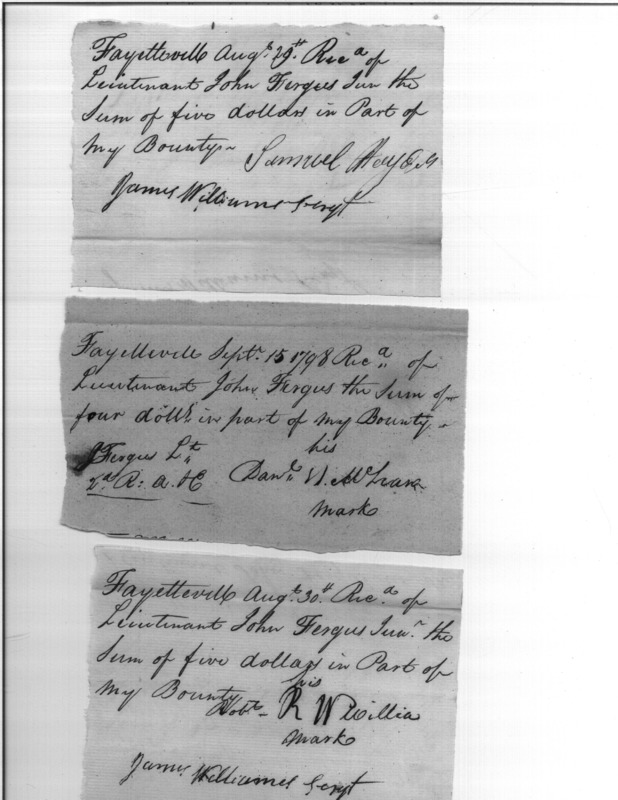 Fayetteville Augt. 29th. Recd of
Lieutenant John Fergus Jun the
Sum of five dollars in Part of
My Bounty~
Samuel
James Williams Sergt
Fayetteville Septr. 15 1798 Recd of
Lieutenant John Fergus the Sum of
four dolls. in part of My Bounty
his
J Fergus Lt.
Danl.
2d R: A. &
Mark
Fayetteville Augt. 30th. Recd. of
Lieutenant John Fergus Junr. the
Sum of five dollars in Part of
My Bounty
his
Robt- R W
Mark
James Williams Sergt